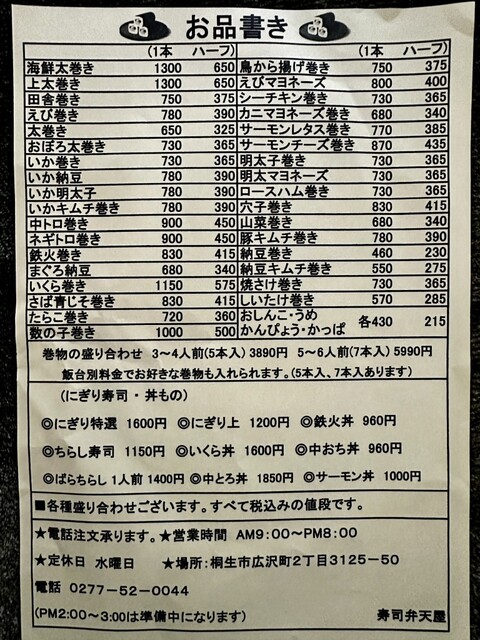 お品書き
(1本 ハーフ) (1本 ハーフ)
海鮮太巻き 1300 650 鳥から揚げ巻き 750 375
上太巻き 1300 650 えびマヨネーズ 800 400
田舎巻き 750 375 シーチキン巻き 730 365
えび巻き 780 390 カニマヨネーズ巻き 680 340
太巻き 650 325 サーモンレタス巻き 770 385
おぼろ太巻き 730 365 サーモンチーズ巻き 870 435
いか巻き 730 365 明太子巻き 730 365
いか納豆 780 390 明太マヨネーズ 730 365
いか明太子 780 390 ロースハム巻き 730 365
いかキムチ巻き 780 390 穴子巻き 830 415
中トロ巻き 900 450 山菜巻き 680 340
ネギトロ巻き 900 450 豚キムチ巻き 780 390
鉄火巻き 830 415 納豆巻き 460 230
まぐろ納豆 680 340 納豆キムチ巻き 550 275
いくら巻き 1150 575 焼さけ巻き 730 365
さば青じそ巻き 830 415 しいたけ巻き 570 285
たらこ巻き 720 360 おしんこ・うめ
数の子巻き 1000 500 かんぴょう・かっぱ 各430 215
巻物の盛り合わせ 3～4人前(5本入) 3890円 5～6人前(7本入) 5990円
飯台別料金でお好きな巻物も入れられます。(5本入、7本入あります)
(にぎり寿司・丼もの)
◎にぎり特選 1600円 ◎にぎり上 1200円 ◎鉄火丼 960円
◎ちらし寿司 1150円 ◎いくら丼 1600円 ◎中おち丼 960円
◎ばらちらし 1人前 1400円 ◎中とろ丼 1850円 ◎サーモン丼 1000円
■各種盛り合わせございます。すべて税込みの値段です。
★電話注文承ります。★営業時間 AM9:00～PM8:00
★定休日 水曜日 ★場所:桐生市広沢町2丁目3125-50
電話 0277-52-0044
(PM2:00～3:00は準備中になります) 寿司弁天屋